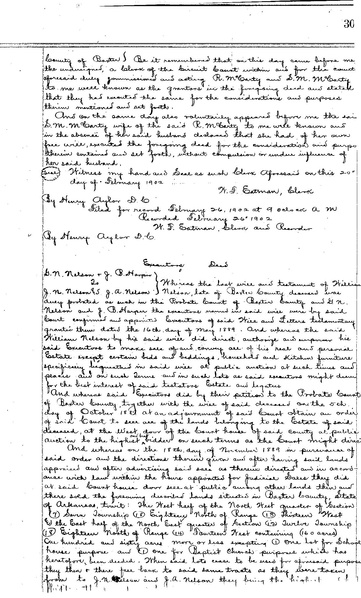 30
County of Baxter } Be it remembered that on this day came before me
the undersigned, a Clerk of the Circuit Court within and for the county
aforesaid duly commissioned and acting R. McCarty and D. M. McCarty
to me well known as the grantors in the foregoing deed and stated
that they had executed the same for the considerations and purposes
therein mentioned and set forth.
And on the same day also voluntarily appeared before me the said
D. M. McCarty wife of the said R. McCarty to me well known and
in the absence of her said husband declared that she had of her own
free will, executed the foregoing deed for the consideration and purpose
therein contained and set forth, without compulsion or undue influence of
her said husband.
Seal Witness my hand and Seal as such Clerk Aforesaid on this 20th
day of February 1902
W. F. Eatman, Clerk
By Henry Aylor D.C.
Filed for record February 26, 1902 at 9 oclock A M
Recorded February 26th 1902
W. F. Eatman, Clerk and Recorder
By Henry Aylor D.C.
Executors Deed
G. N. Nelson & J. P. Harper
To } Whereas the last will and testament of William
J. N. Nelson & J. A. Nelson } Nelson, late of Baxter County deceased was
duly probated as such in the Probate Court of Baxter County and G. N.
Nelson and J. P. Harper the executors named in said will were by said
Court confirmed and appointed Executors of said Will and Letters testamentary
granted them dated the 16th day of May 1889. And whereas the said
William Nelson by his said will did direct, authorize and empower his
said Executors to make sale of all of his real and personal
Estate except certain beds and beddings, household and kitchen furniture
specifically bequeathed in said will at public auction at such times and
places and on such terms and in such lots as said executors might deem
for the best interest of said testators Estate and legatees
And whereas said Executors did by their petition to the Probate Court
of Baxter County together with the will of said deceased on the 8th
day of October at an adjournment of said Court obtain an order
of said Court to sell all of the lands belonging to the Estate of said
deceased, at the West door of the Court house of said County at public
auction to the highest bidder on such terms as the Court might direct
And whereas on the 18th day of November 1889 in pursuance of
said order and the directions therein given and after having said lands
appraised and after advertising said sale as therein directed and in accord-
ance with law within the time appointed for Judicial Sales they did
at said Court house door sell at public among other lands then and
there sold the following described lands situated in Baxter County, State
of Arkansas, to wit: The West half of the North West quarter of Section
(7) Seven Township (18) Eighteen North of Range (13) Thirteen West
& the East half of the North East quarter of Section (12) Twelve Township
(18) Eighteen North of Range (14) Fourteen West containing (160 acres)
One hundred and sixty acres more or less excepting (1) one lot for School
house purpose and (1) one for Baptist Church purposes which has
heretofore been deeded. When said lots cease to be used for aforesaid purpose
they then & there fall back to said same tracts as they were taken
from to J. N. Nelson and J. A. Nelson they being the highest